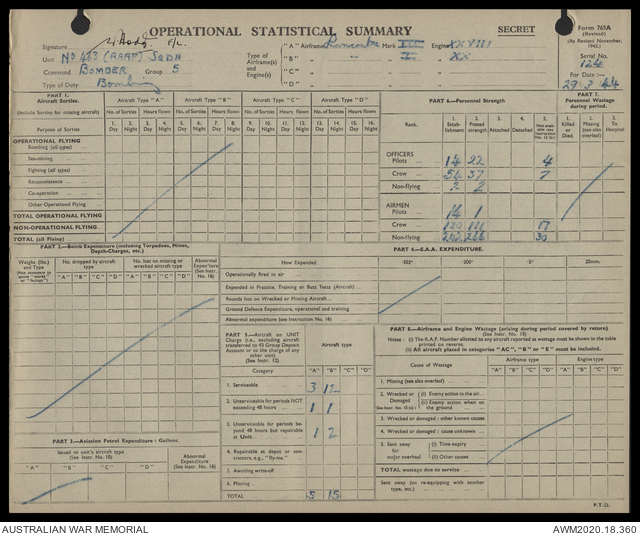 OPERATIONAL STATISTICAL SUMMARY
SECRET
Form 765A
(Revised)
(As Revised November, 1943.)
Signature F/L.
Unit No 463 (RAAF) SQDN
Command BOMBER Group 5
Type of Duty Bombing
Type of Airframe(s) and Engine(s)
"A" Airframe Lancaster Mark III Engine XXVIII
"B" " - " I " XX
"C" " " "
"D" " " "
Serial No. 124
For Date :— 29.3.44
PART 1.
Aircraft Sorties.
(Include Sorties for missing aircraft)
Aircraft Type "A" Aircraft Type "B" Aircraft Type "C" Aircraft Type "D"
No. of Sorties Hours flown No. of Sorties Hours flown No. of Sorties Hours flown No. of Sorties Hours flown
Purpose of Sorties
1. Day 2. Night 3. Day 4. Night 5. Day 6. Night 7. Day 8. Night 9. Day 10. Night 11. Day 12. Night 13. Day 14. Night 15. Day 16. Night
OPERATIONAL FLYING
Bombing (all types)
Sea-mining
Fighting (all types)
Reconnaissance
Co-operation
Other Operational Flying
TOTAL OPERATIONAL FLYING
NON-OPERATIONAL FLYING
TOTAL (all Flying)
PART 6.—Personnel Strength
Rank.
1. Establishment 2. Posted strength 3. Attached 4. Detached 5. Not available
OFFICERS
Pilots 14 22 4
Crew 54 37 7
Non-flying 2 2
AIRMEN
Pilots 14 1
Crew
Non-flying 266 30
PART 7.
Personnel Wastage during period.
1. Killed or Died. 2. Missing (see also overleaf) 3. To Hospital
PART 2.—Bomb Expenditure (including Torpedoes, Mines, Depth-Charges, etc.)
Weight (lbs.) and Type
No. dropped by aircraft type
No. lost on missing or wrecked aircraft type
Abnormal Expenditure (See Instr. No. 16)
"A" "B" "C" "D" "A" "B" "C" "D"
PART 4.—S.A.A. EXPENDITURE.
How Expended. ·303" ·300" ·5" 20mm.
Operationally fired in air
Expended in Practice, Training or Butt Tests (Aircraft)
Rounds lost on Wrecked or Missing Aircraft
Ground Defence Expenditure, operational and training
Abnormal expenditure (see Instruction No. 16)
PART 5.—Aircraft on UNIT Charge (i.e., excluding aircraft transferred to 43 Group Deposit Account or to the charge of any other unit)
(See Instr. 12)
Aircraft type
Category "A" "B" "C" "D"
1. Serviceable 3 12
2. Unserviceable for periods NOT exceeding 48 hours 1 1
3. Unserviceable for periods beyond 48 hours but repairable at Unit. 1 2
4. Repairable at depot or contractors, e.g., "fly-ins."
5. Awaiting write-off
6. Missing
TOTAL 5 15
PART 8.—Airframe and Engine Wastage (arising during period covered by return)
(See Instr. No. 13)
Notes : (i) The R.A.F. Number allotted to any aircraft reported as wastage must be shown in the table printed on reverse.
(ii) All aircraft placed in categories "AC", "B" or "E" must be included.
Cause of Wastage
Airframe type Engine type
"A" "B" "C" "D" "A" "B" "C" "D"
1. Missing (see also overleaf)
2. Wrecked or Damaged (i) Enemy action in the air
(ii) Enemy action when on the ground
3. Wrecked or damaged : other known causes
4. Wrecked or damaged : cause unknown
5. Sent away for major overhaul (i) Time expiry
(ii) Other causes
TOTAL wastage due to service
Sent away (on re-equipping with another type, etc.)
PART 3.—Aviation Petrol Expenditure : Gallons.
Issued to unit's aircraft type
(See Instr. No. 10)
Abnormal Expenditure (See Instr. No. 16)
"A" "B" "C" "D"
P.T.O.
AUSTRALIAN WAR MEMORIAL
AWM2020.18.360